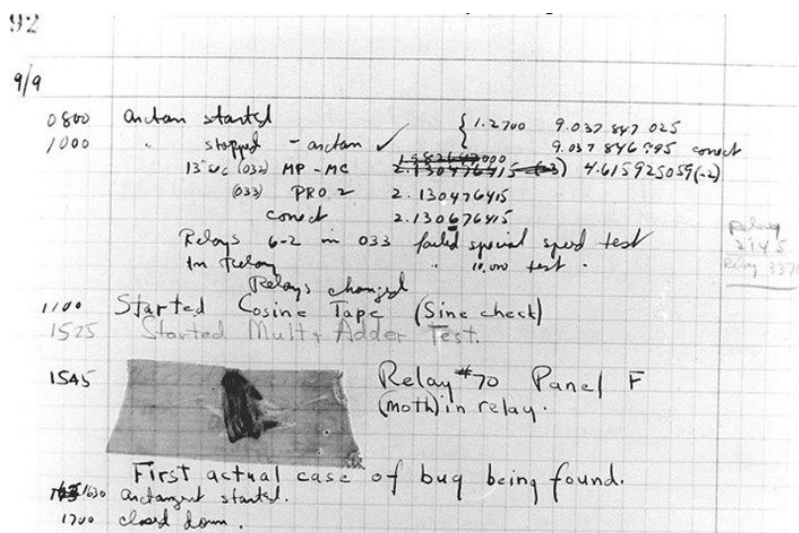 92
9/9
0800 arctan started { 1.2700 9.037 847 025
1000 " stopped - arctan ✓ 9.037 846 995 correct
13"sec (032) MP - MC 2.130476415 (-3) 4.615925059(-2)
(033) PRO 2 2.130476415
correct 2.130676415
Relays 6-2 in 033 failed special speed test
In Relay " 10,000 test .
Relay
2145
Relay 3370
Relays changed
1100 Started Cosine Tape (Sine check)
1525 Started Mult + Adder Test.
1545 Relay #70 Panel F
(moth) in relay.
First actual case of bug being found.
1630 arctangent started.
1700 closed down.